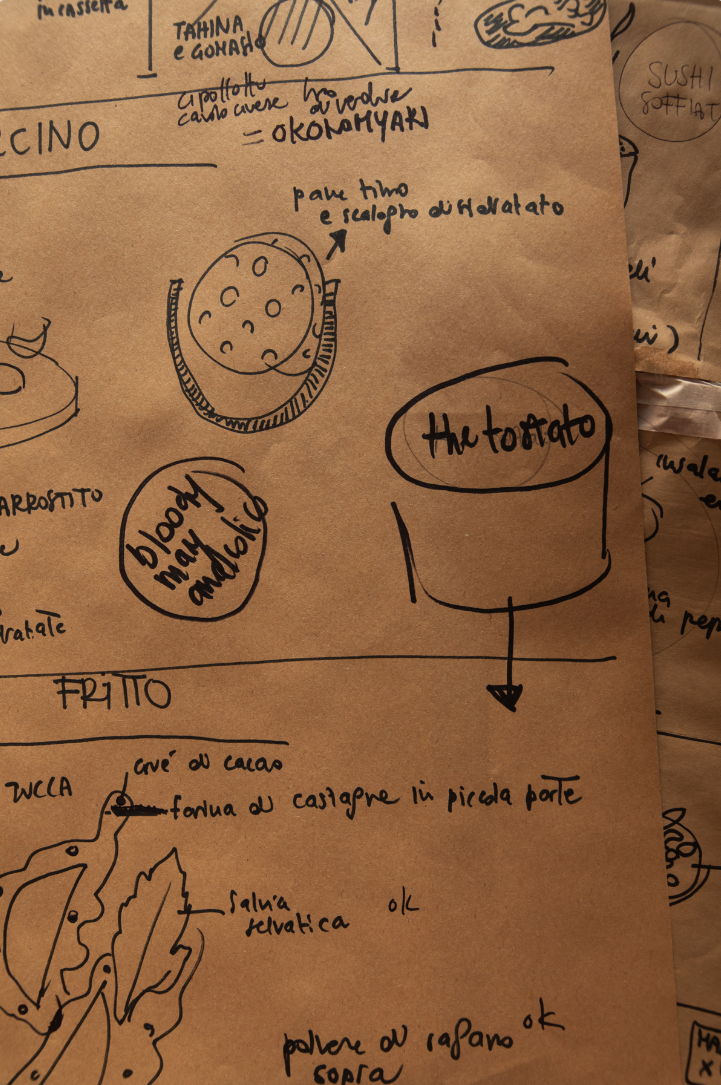 in cassetta
TAHINA
e GOMASIO
cipollotto
cavolo cinese
di verdure
= OKONOMYAKI
SUSHI
SOFFIAT
CCINO
pane timo
e scalogno disidratato
the tostato
ARROSTITO
bloody
mary
analcolico
dratate
FRITTO
ZUCCA
gruè di cacao
farina di castagne in piccola parte
salvia
selvatica
ok
polvere di rafano ok
sopra
insala
di pep
MA
X